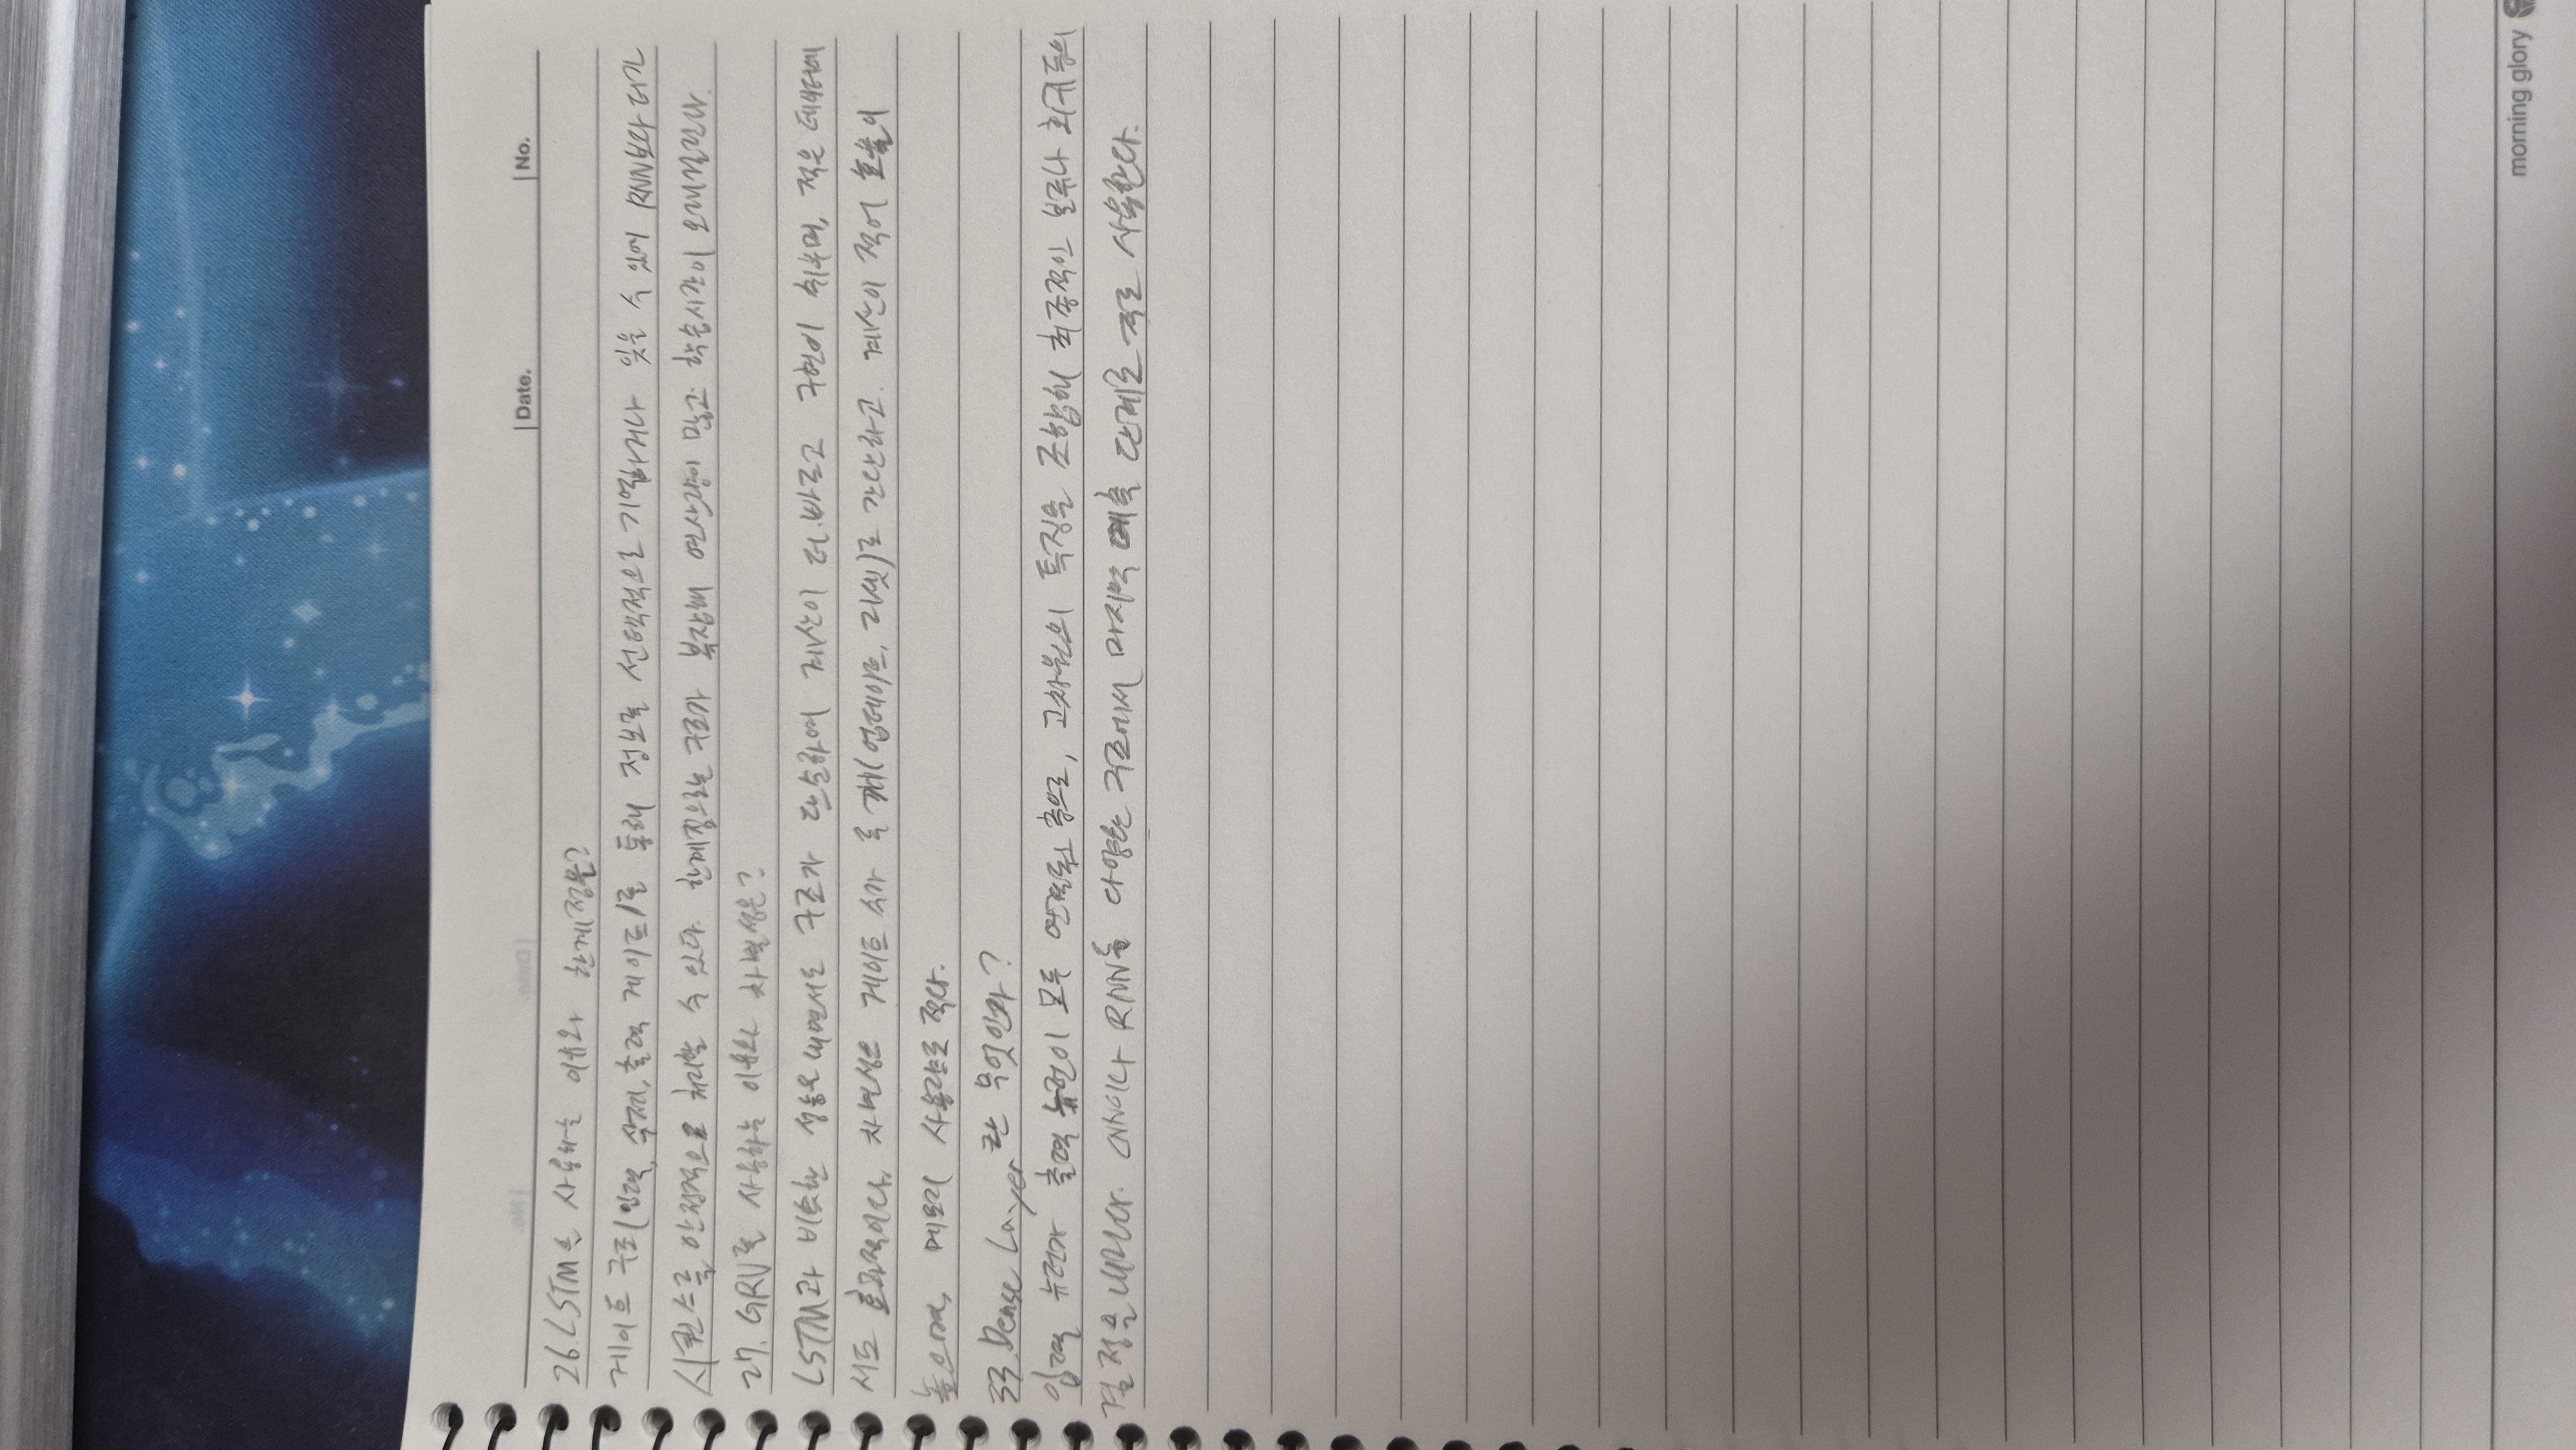 Date. No.
26. LSTM을 사용하는 이유와 한계점은?
게이트 구조(입력, 삭제, 출력 게이트)를 통해 정보를 선택적으로 기억하거나 잊을 수 있어 RNN보다 더긴
시퀀스를 안정적으로 처리할 수 있다. 한계점으로는 구조가 복잡해 연산량이 많고 학습시간이 오래걸린다.
27. GRU를 사용하는 이유와 차별성은?
LSTM과 비슷한 성능을 내면서도 구조가 단순하여 계산이 더 빠르고 구현이 쉬우며, 적은 데이터에
서도 효과적이다. 차별성은 게이트 수가 두 개(업데이트, 리셋)로 간단하고. 계산이 적어 효율이
높으며, 메모리 사용량도 적다.
33. Dense Layer란 무엇인가?
입력 뉴런과 출력 뉴런이 모두 연결된 층으로, 고차원의 특징을 조합해 최종적인 분류나 회귀 등의
결정을 내린다. CNN이나 RNN등 다양한 구조에서 마지막 예측 단계로 주로 사용한다.
morning glory